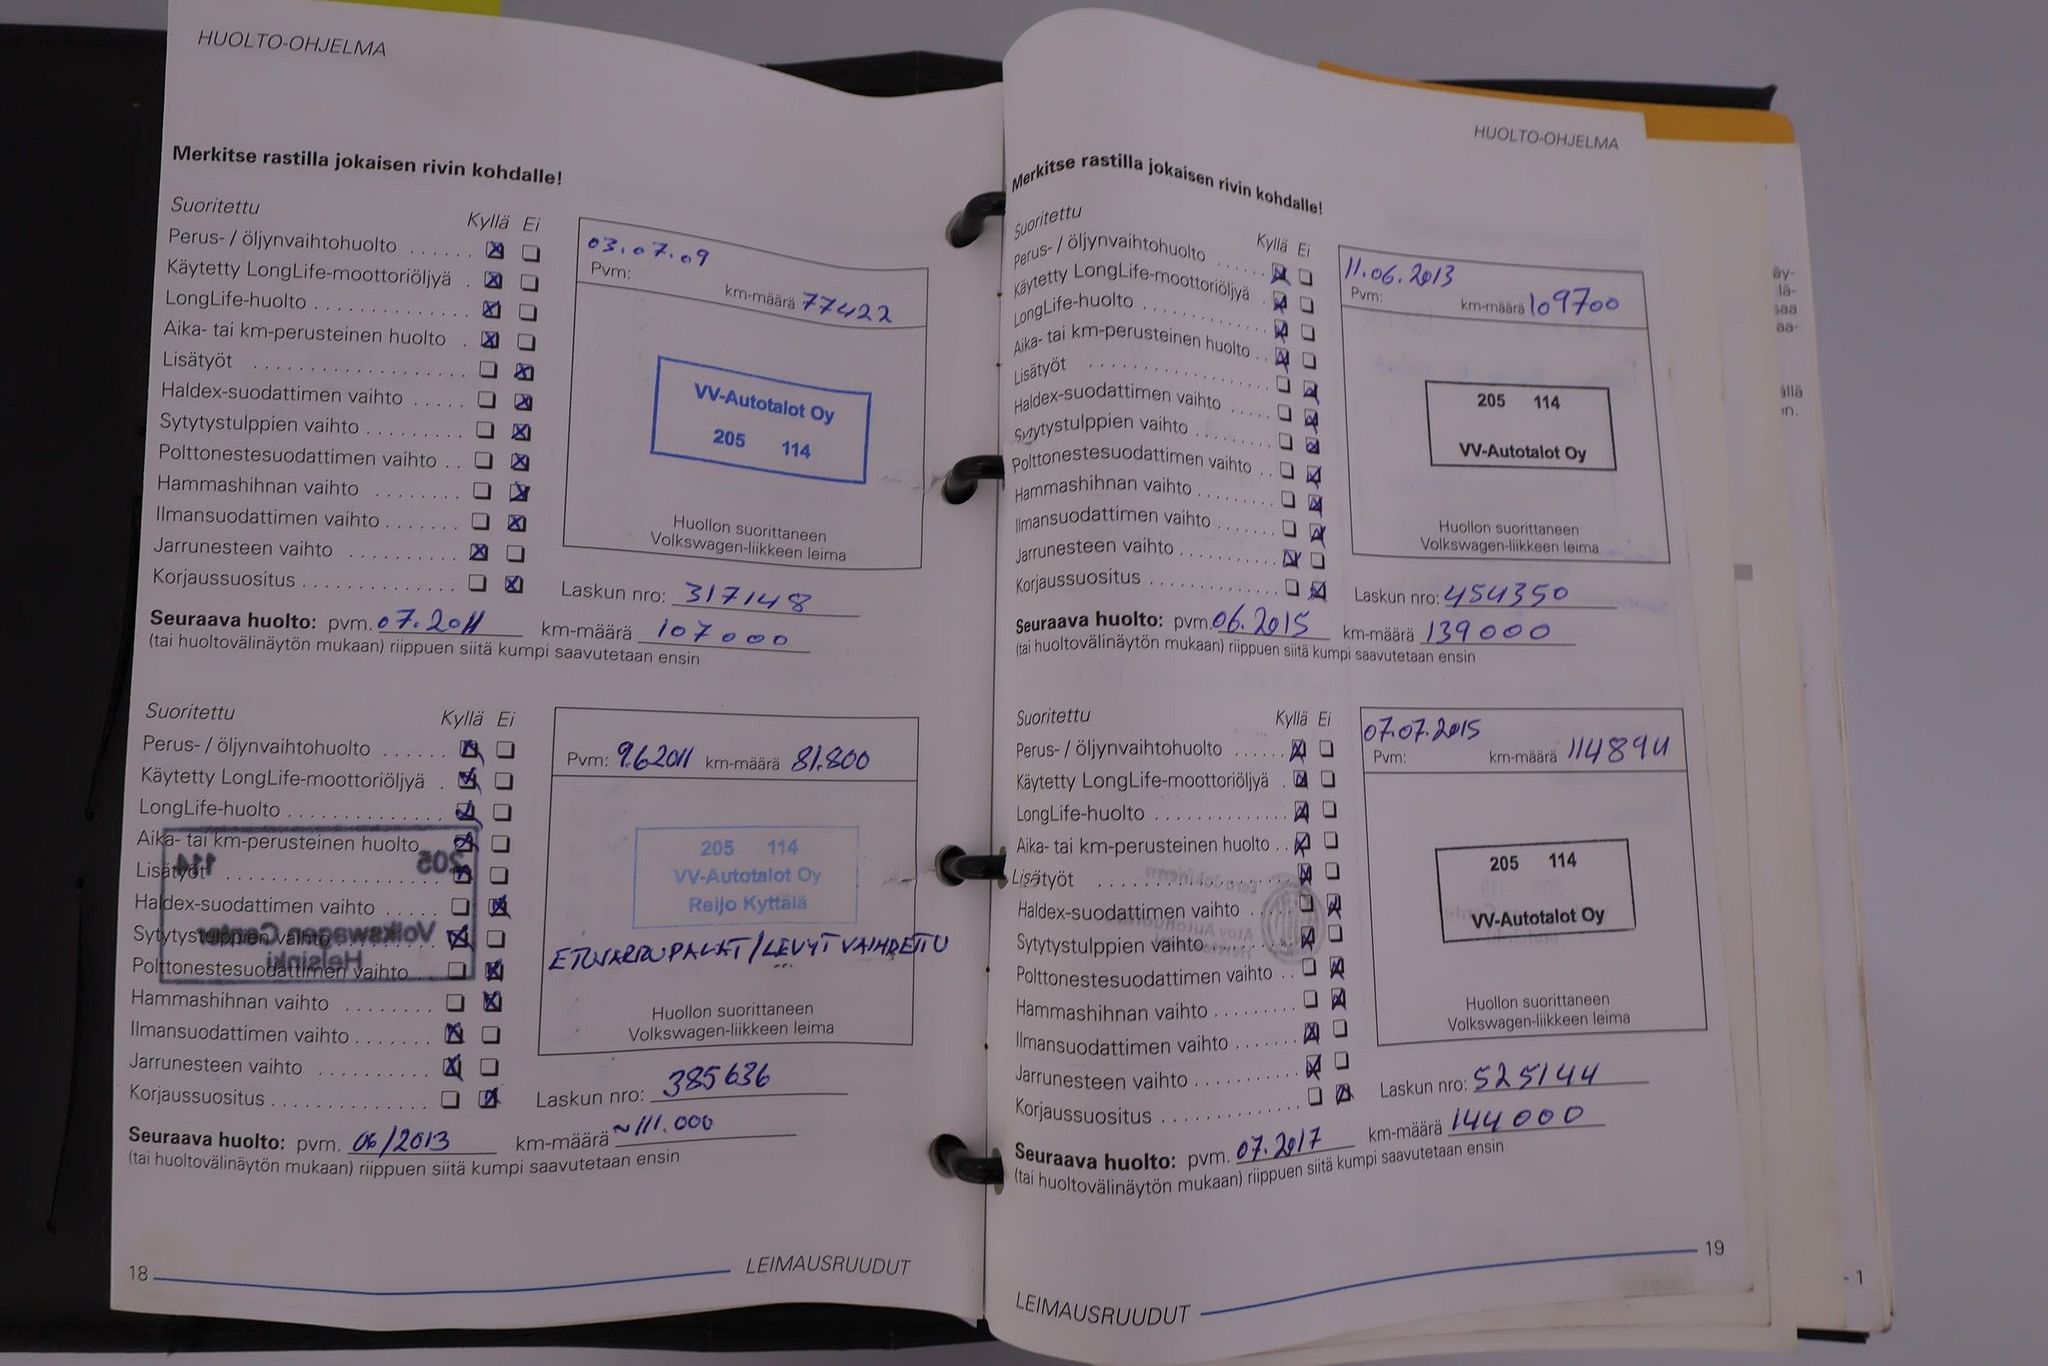 HUOLTO-OHJELMA
Merkitse rastilla jokaisen rivin kohdalle!
Suoritettu Kyllä Ei
Perus- / öljynvaihtohuolto ......
Käytetty LongLife-moottoriöljyä .
LongLife-huolto ..............
Aika- tai km-perusteinen huolto .
Lisätyöt ....................
Haldex-suodattimen vaihto .....
Sytytystulppien vaihto .........
Polttonestesuodattimen vaihto ..
Hammashihnan vaihto ........
Ilmansuodattimen vaihto .......
Jarrunesteen vaihto ..........
Korjaussuositus ..............
03.07.09
Pvm: km-määrä 77422
VV-Autotalot Oy
205 114
Huollon suorittaneen
Volkswagen-liikkeen leima
Laskun nro: 317148
Seuraava huolto: pvm. 07.2011 km-määrä 107000
(tai huoltovälinäytön mukaan) riippuen siitä kumpi saavutetaan ensin
Suoritettu Kyllä Ei
Perus- / öljynvaihtohuolto ......
Käytetty LongLife-moottoriöljyä .
LongLife-huolto ..............
Aika- tai km-perusteinen huolto
Lisätyöt ....................
Haldex-suodattimen vaihto .....
Sytytystulppien vaihto
Polttonestesuodattimen vaihto
Hammashihnan vaihto ........
Ilmansuodattimen vaihto .......
Jarrunesteen vaihto ..........
Korjaussuositus ..............
205 114
Volkswagen Center
Helsinki
Pvm: 9.6.2011 km-määrä 81.800
205 114
VV-Autotalot Oy
Reijo Kyttälä
ETUJARRUPALAT/LEVYT VAIHDETTU
Huollon suorittaneen
Volkswagen-liikkeen leima
Laskun nro: 385636
Seuraava huolto: pvm. 06/2013 km-määrä ~111.000
(tai huoltovälinäytön mukaan) riippuen siitä kumpi saavutetaan ensin
18 LEIMAUSRUUDUT
HUOLTO-OHJELMA
Merkitse rastilla jokaisen rivin kohdalle!
Suoritettu Kyllä Ei
Perus- / öljynvaihtohuolto ......
Käytetty LongLife-moottoriöljyä .
LongLife-huolto ..............
Aika- tai km-perusteinen huolto ..
Lisätyöt ....................
Haldex-suodattimen vaihto .....
Sytytystulppien vaihto .........
Polttonestesuodattimen vaihto ..
Hammashihnan vaihto ........
Ilmansuodattimen vaihto .......
Jarrunesteen vaihto ..........
Korjaussuositus ..............
11.06.2013
Pvm: km-määrä 109700
205 114
VV-Autotalot Oy
Huollon suorittaneen
Volkswagen-liikkeen leima
Laskun nro: 454350
Seuraava huolto: pvm. 06.2015 km-määrä 139000
(tai huoltovälinäytön mukaan) riippuen siitä kumpi saavutetaan ensin
Suoritettu Kyllä Ei
Perus- / öljynvaihtohuolto ......
Käytetty LongLife-moottoriöljyä .
LongLife-huolto ..............
Aika- tai km-perusteinen huolto ..
Lisätyöt ....................
Haldex-suodattimen vaihto .....
Sytytystulppien vaihto .........
Polttonestesuodattimen vaihto ..
Hammashihnan vaihto ........
Ilmansuodattimen vaihto .......
Jarrunesteen vaihto ..........
Korjaussuositus ..............
07.07.2015
Pvm: km-määrä 114894
205 114
VV-Autotalot Oy
Huollon suorittaneen
Volkswagen-liikkeen leima
Laskun nro: 525144
Seuraava huolto: pvm. 07.2017 km-määrä 144000
(tai huoltovälinäytön mukaan) riippuen siitä kumpi saavutetaan ensin
LEIMAUSRUUDUT 19
- 1